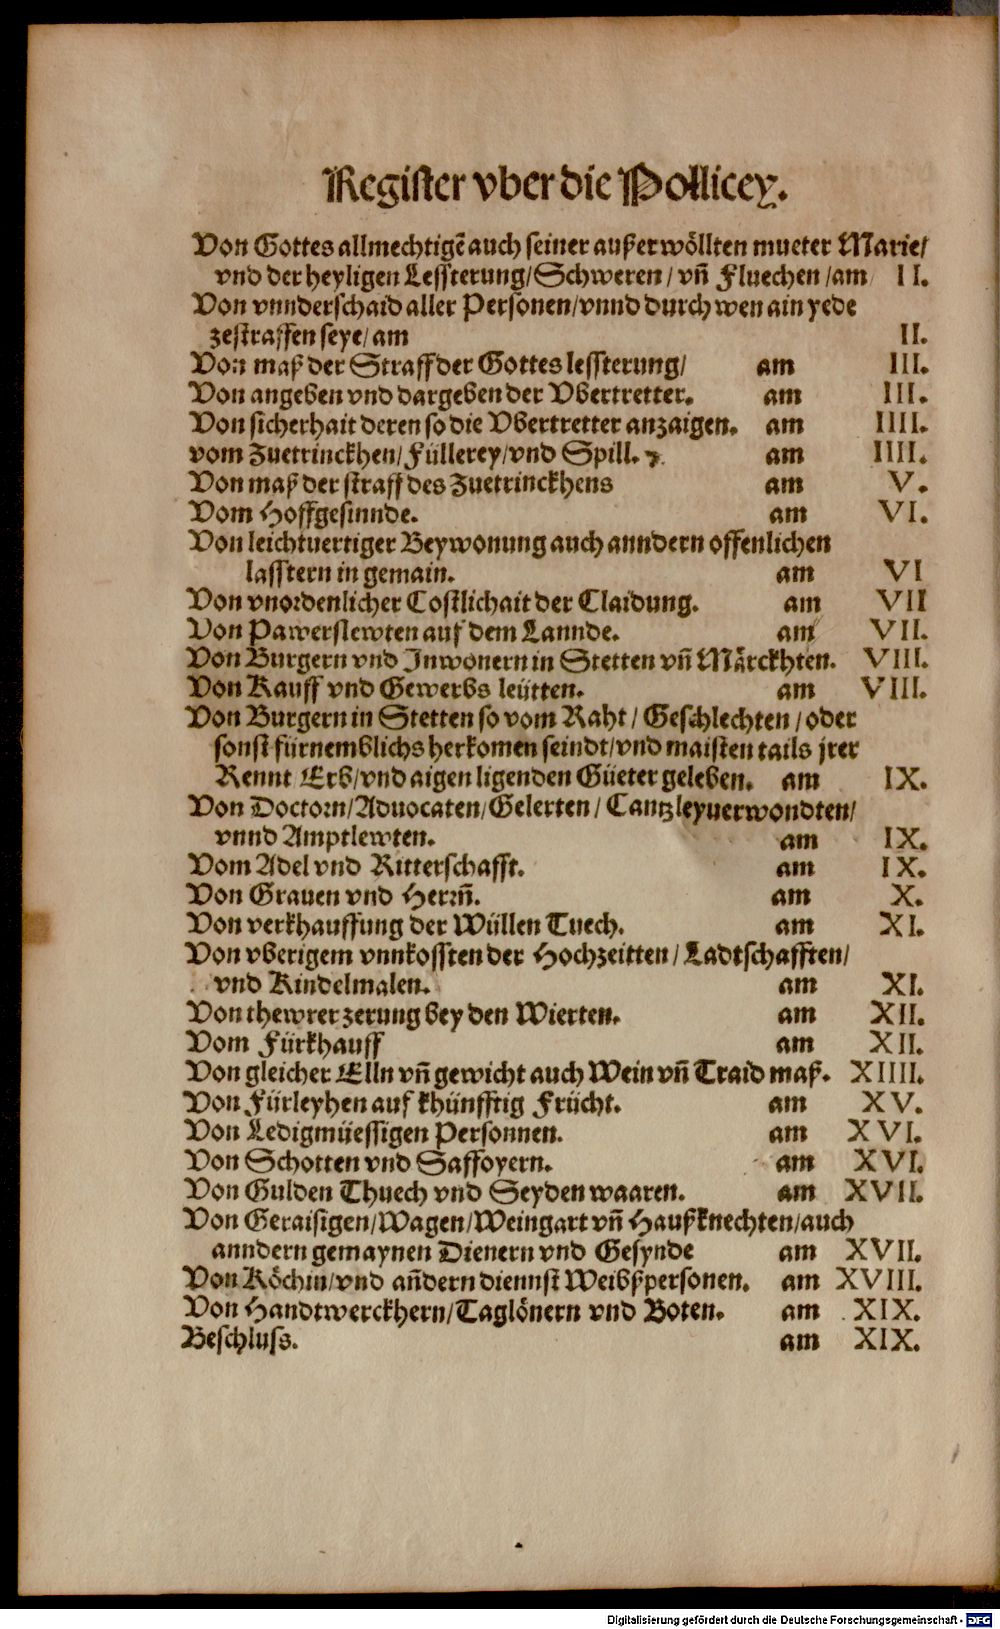 Register vber die Pollicey.
Von Gottes allmechtigẽ auch seiner außerwöllten mueter Marie/
vnd der heyligen Lessterung/Schweren/ vñ Fluechen /am II.
Von vnnderschaid aller Personen/vnnd durch wen ain yede
zestraffen seye/ am II.
Von maß der Straff der Gottes lessterung/ am III.
Von angeben vnd dargeben der Vbertretter. am III.
Von sicherhait deren so die Vbertretter anzaigen. am IIII.
vom Zuetrinckhen/Füllerey/vnd Spill. am IIII.
Von maß der straff des Zuetrinckhens am V.
Vom Hoffgesinnde. am VI.
Von leichtuertiger Beywonung auch anndern offenlichen
lasstern in gemain. am VI
Von vnordenlicher Costlichait der Claidung. am VII
Von Pawerslewten auf dem Lannde. am VII.
Von Burgern vnd Jnwonern in Stetten vñ Märckhten. VIII.
Von Kauff vnd Gewerbs leütten. am VIII.
Von Burgern in Stetten so vom Raht/ Geschlechten /oder
sonst fürnemblichs herkomen seindt/vnd maisten tails jrer
Rennt/Erb/vnd aigen ligenden Güeter geleben. am IX.
Von Doctorn/Aduocaten/Gelerten/ Cantzleyuerwondten/
vnnd Amptlewten. am IX.
Vom Adel vnd Ritterschafft. am IX.
Von Grauen vnd Herrñ. am X.
Von verkhauffung der Wüllen Tuech. am XI.
Von vberigem vnnkossten der Hochzeitten/Ladtschafften/
vnd Kindelmalen. am XI.
Von thewrer zerung bey den Wierten. am XII.
Vom Fürkhauff am XII.
Von gleicher Elln vñ gewicht auch Wein vñ Traid maß. XIIII.
Von Fürleyhen auf khünfftig Frücht. am XV.
Von Ledigmüessigen Personnen. am XVI.
Von Schotten vnd Saffoyern. am XVI.
Von Gulden Thuech vnd Seyden waaren. am XVII.
Von Geraisigen/Wagen/Weingart vñ Haußknechten/auch
anndern gemaynen Dienern vnd Gesynde am XVII.
Von Köchin/vnd añdern diennst Weibßpersonen. am XVIII.
Von Handtwerckhern/Taglönern vnd Boten. am XIX.
Beschluss. am XIX.
Digitalisierung gefördert durch die Deutsche Forschungsgemeinschaft - DFG